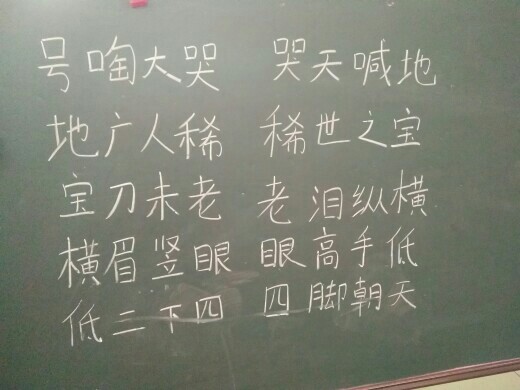 号啕大哭 哭天喊地
地广人稀 稀世之宝
宝刀未老 老泪纵横
横眉竖眼 眼高手低
低二下四 四脚朝天